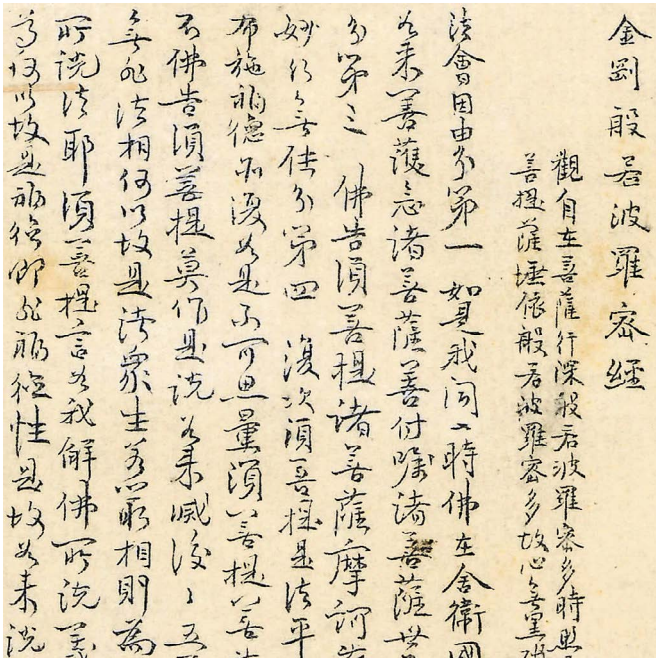 金剛般若波羅密經
觀自在菩薩行深般若波羅密多時照
菩提薩埵依般若波羅密多故心無罣礙
法會因由分第一 如是我聞一時佛在舍衛國
如來善護念諸菩薩善付囑諸菩薩世
分第三 佛告須菩提諸菩薩摩訶薩
妙行無住分第四 復次須菩提是法平
布施福德亦復如是不可思量須菩提菩
不佛告須菩提莫作是說如來滅後後五
無非法相何以故是諸眾生若心取相則為
所說法耶須菩提言如我解佛所說義
何以故是福德即非福德性是故如來說